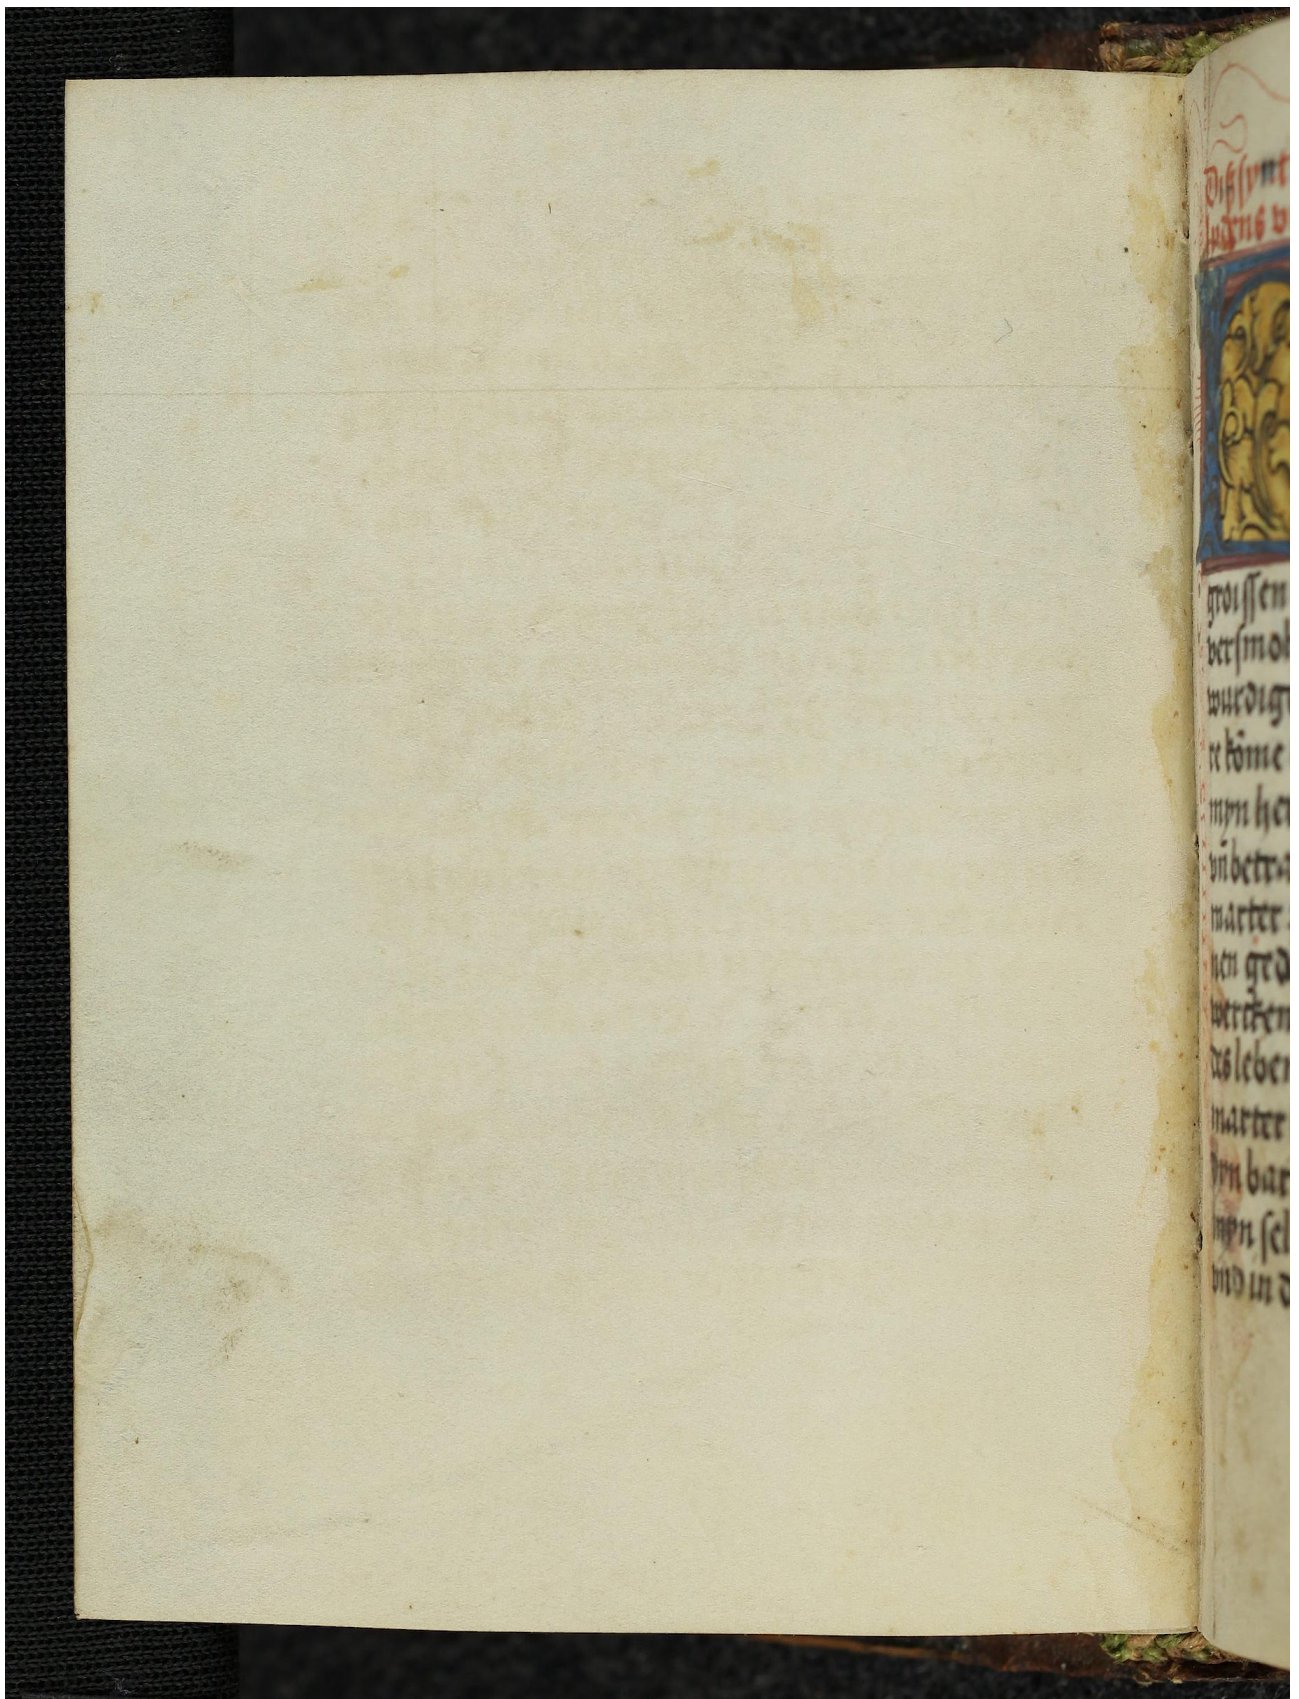 Diß synt
groissen
versmoh
wurdige
re kōme
myn her
vn̄ betra
marter
nen ged
wercken
des leben
marter
dyn bar
myn sel
vnd in d